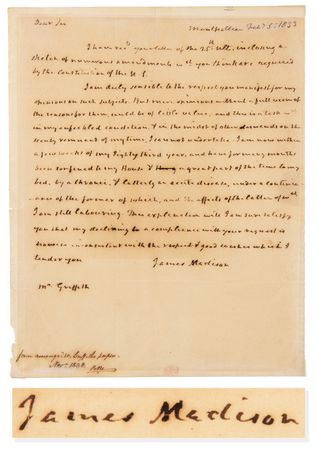 Dear Sir
Montpellier Feb 5. 1833
I have recd your letter of the 25th Ult, inclosing a
sketch of numerous amendments wch you think are required
by the Constitution of the U. S.
I am duly sensible to the respect you manifest for my
opinions on such subjects. But mere opinions without a full view of
the reasons for them, could be of little value, and this is a task wch
in my enfeebled condition, & in the midst of other demands on the
scanty remnant of my time, I can not undertake. I am now within
a few weeks of my Eighty third year, and have for many months
been confined to my House & a great part of the time to my
bed, by a chronic, & latterly an acute disease, under a continu-
ance of the former of which, and the effects of the latter of wch
I am still labouring. This explanation will I am sure satisfy
you that my declining a compliance with your request is
no wise inconsistent with the respect & good wishes which I
tender you
James Madison
Mr Griffith
from amongst
Novr 1838.
James Madison